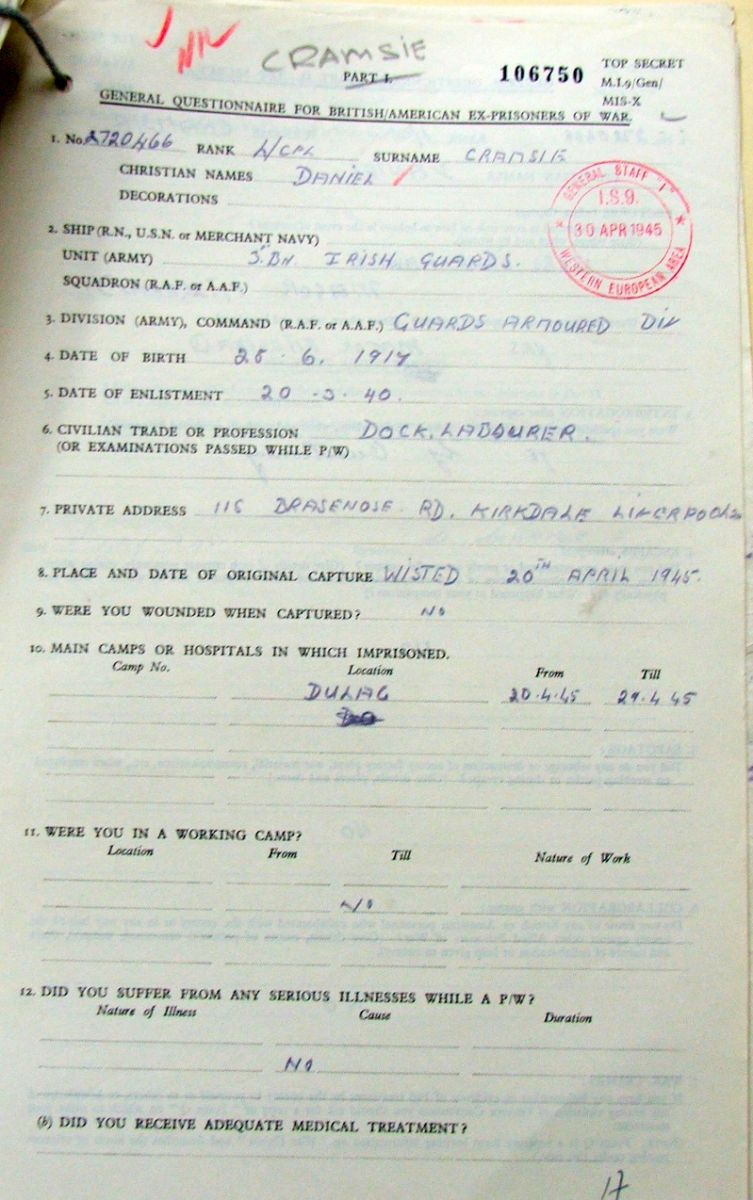 CRAMSIE
PART I.
106750
TOP SECRET
M.I.9/Gen/
MIS-X
GENERAL QUESTIONNAIRE FOR BRITISH/AMERICAN EX-PRISONERS OF WAR.
1. No. 2720466 RANK L/CPL SURNAME CRAMSIE
CHRISTIAN NAMES DANIEL
DECORATIONS
GENERAL STAFF "I"
I.S.9.
30 APR 1945
WESTERN EUROPEAN AREA
2. SHIP (R.N., U.S.N. or MERCHANT NAVY)
UNIT (ARMY) 3. BN. IRISH GUARDS.
SQUADRON (R.A.F. or A.A.F.)
3. DIVISION (ARMY), COMMAND (R.A.F. or A.A.F.) GUARDS ARMOURED DIV
4. DATE OF BIRTH 6. 1917
5. DATE OF ENLISTMENT 20 -3- 40.
6. CIVILIAN TRADE OR PROFESSION DOCK. LABOURER.
(OR EXAMINATIONS PASSED WHILE P/W)
7. PRIVATE ADDRESS 116 BRASENOSE RD. KIRKDALE LIVERPOOL
8. PLACE AND DATE OF ORIGINAL CAPTURE WISTED 20TH APRIL 1945.
9. WERE YOU WOUNDED WHEN CAPTURED? NO
10. MAIN CAMPS OR HOSPITALS IN WHICH IMPRISONED.
Camp No. Location From Till
DULAG 20.4.45 29.4 45
11. WERE YOU IN A WORKING CAMP?
Location From Till Nature of Work
NO
12. DID YOU SUFFER FROM ANY SERIOUS ILLNESSES WHILE A P/W?
Nature of Illness Cause Duration
NO
(b) DID YOU RECEIVE ADEQUATE MEDICAL TREATMENT?
17